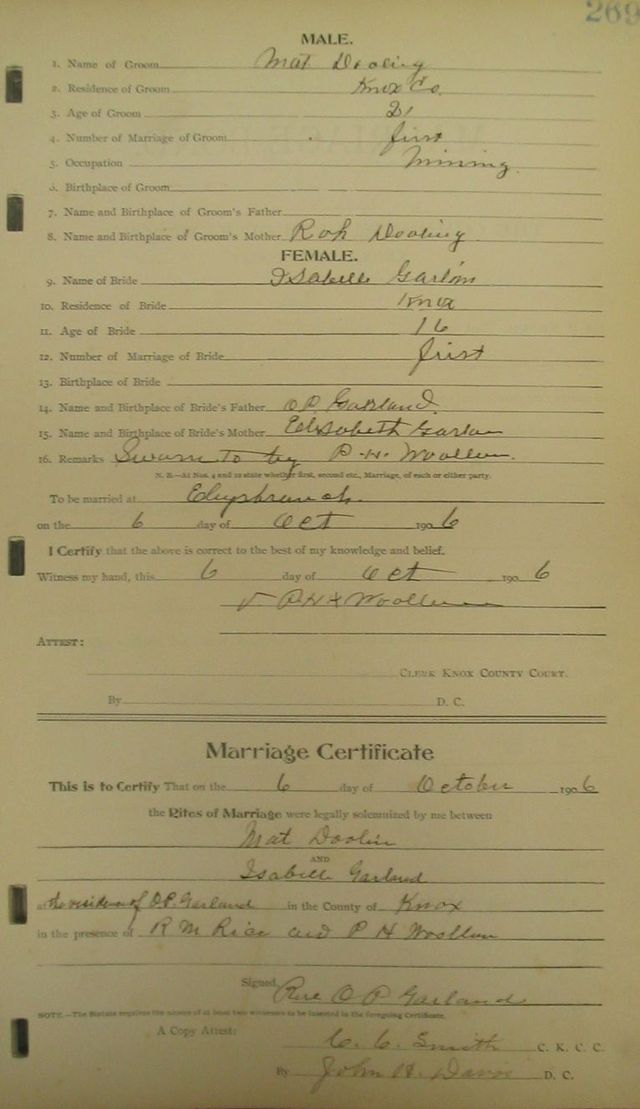 269
MALE.
1. Name of Groom Mat Dooling
2. Residence of Groom Knox Co.
3. Age of Groom 21
4. Number of Marriage of Groom first
5. Occupation Mining.
6. Birthplace of Groom
7. Name and Birthplace of Groom's Father
8. Name and Birthplace of Groom's Mother Roh Dooling
FEMALE.
9. Name of Bride Isabelle
10. Residence of Bride Knox
11. Age of Bride 16
12. Number of Marriage of Bride first
13. Birthplace of Bride
14. Name and Birthplace of Bride's Father O.P. Garland.
15. Name and Birthplace of Bride's Mother Elisabeth
16. Remarks Sworn to by P. H. Woollum.
N. B.—At Nos. 4 and 12 state whether first, second etc., Marriage, of each or either party.
To be married at
on the 6 day of Oct 1906
I Certify that the above is correct to the best of my knowledge and belief.
Witness my hand, this 6 day of Oct 1906
P H x Woollum
ATTEST:
CLERK KNOX COUNTY COURT.
By D. C.
Marriage Certificate
This is to Certify That on the 6 day of October 1906
the Rites of Marriage were legally solemnized by me between
Mat Doolin
AND
Isabelle Garland
at the residence of O.P. Garland in the County of Knox
in the presence of R M Rice and P H Woollum
Signed, Rev O P Garland
NOTE.—The Statute requires the names of at least two witnesses to be inserted in the foregoing Certificate.
A Copy Attest:
C. C. Smith C. K. C. C.
By John H. Davis D. C.